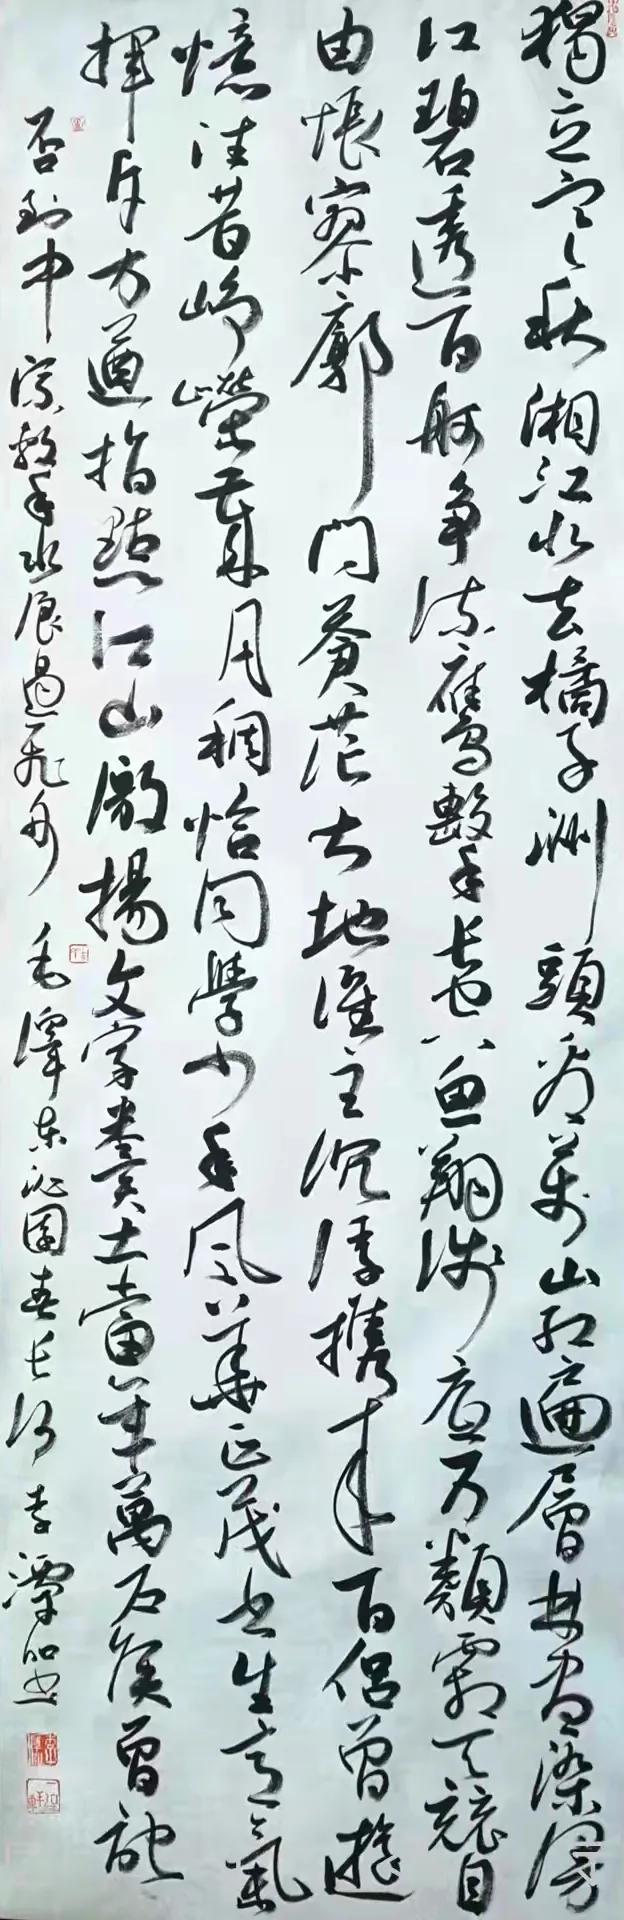 獨立寒秋湘江北去橘子洲頭看萬山紅遍層林盡染漫
江碧透百舸争流鷹擊長空魚翔淺底万類霜天競自
由悵寥廓問蒼茫大地誰主沉浮携來百侣曾遊
憶往昔崢嶸歲月稠恰同學少年風華正茂书生意氣
揮斥方遒指點江山激揚文字糞土當年萬户侯曾記
否到中流擊水浪遏飛舟 毛澤東沁園春長沙 李潭书